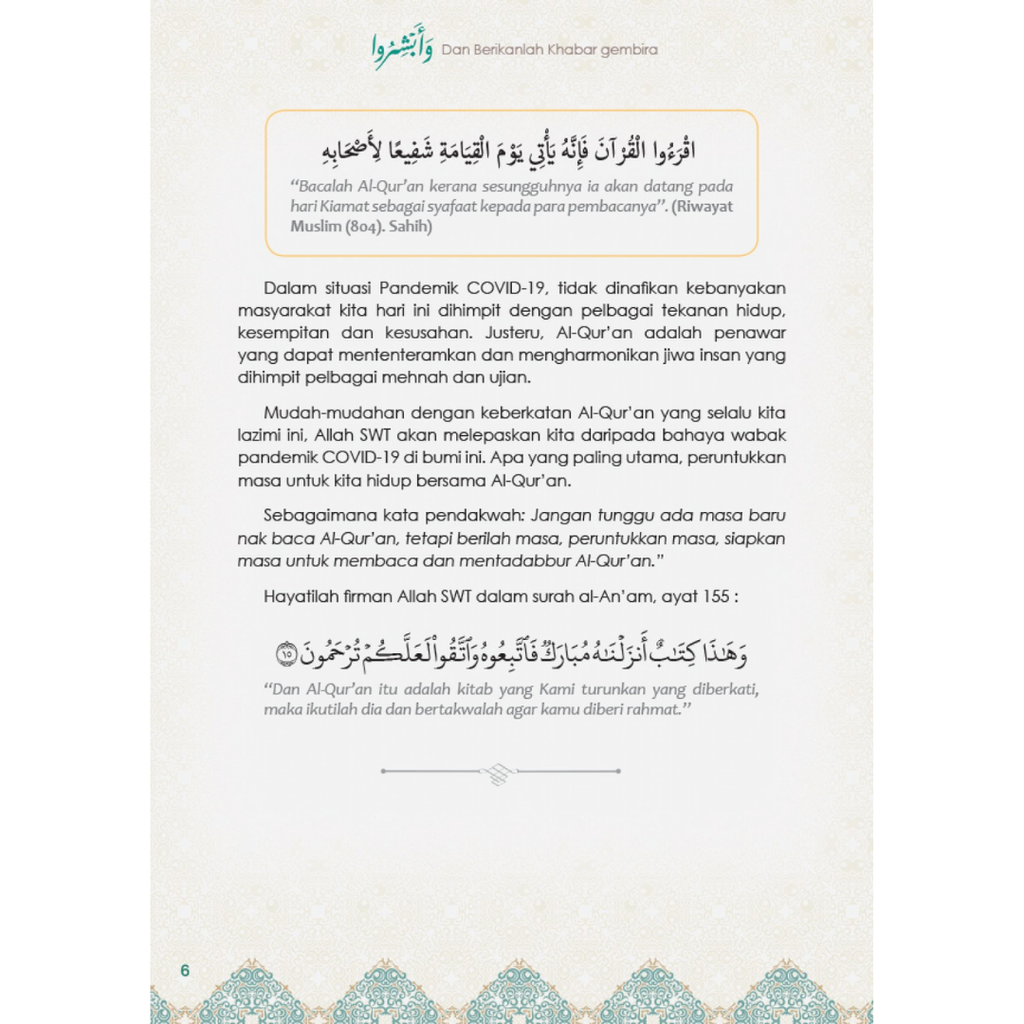 وَأَبْشِرُوا Dan Berikanlah Khabar gembira
اقْرَءُوا الْقُرْآنَ فَإِنَّهُ يَأْتِي يَوْمَ الْقِيَامَةِ شَفِيعًا لِأَصْحَابِهِ
“Bacalah Al-Qur’an kerana sesungguhnya ia akan datang pada
hari Kiamat sebagai syafaat kepada para pembacanya”. (Riwayat
Muslim (804). Sahih)
Dalam situasi Pandemik COVID-19, tidak dinafikan kebanyakan
masyarakat kita hari ini dihimpit dengan pelbagai tekanan hidup,
kesempitan dan kesusahan. Justeru, Al-Qur’an adalah penawar
yang dapat mententeramkan dan mengharmonikan jiwa insan yang
dihimpit pelbagai mehnah dan ujian.
Mudah-mudahan dengan keberkatan Al-Qur’an yang selalu kita
lazimi ini, Allah SWT akan melepaskan kita daripada bahaya wabak
pandemik COVID-19 di bumi ini. Apa yang paling utama, peruntukkan
masa untuk kita hidup bersama Al-Qur’an.
Sebagaimana kata pendakwah: Jangan tunggu ada masa baru
nak baca Al-Qur’an, tetapi berilah masa, peruntukkan masa, siapkan
masa untuk membaca dan mentadabbur Al-Qur’an.”
Hayatilah firman Allah SWT dalam surah al-An’am, ayat 155 :
وَهَٰذَا كِتَٰبٌ أَنزَلْنَٰهُ مُبَارَكٌ فَٱتَّبِعُوهُ وَٱتَّقُوا۟ لَعَلَّكُمْ تُرْحَمُونَ ١٥
“Dan Al-Qur’an itu adalah kitab yang Kami turunkan yang diberkati,
maka ikutilah dia dan bertakwalah agar kamu diberi rahmat.”
6